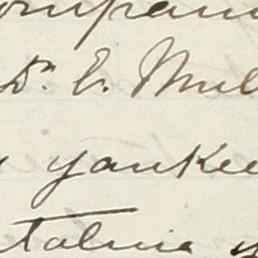 ompani
Dr. E. Mul
yankee
talnie